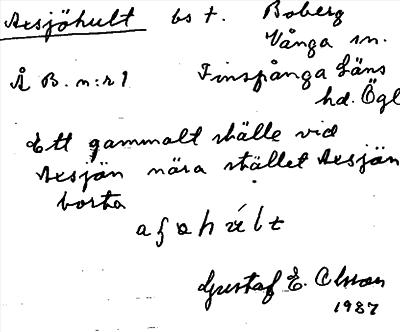 Axsjöhult bs t. Boberg
Vånga sn.
Å B. n:r 1 Finspånga Läns
hd. Ögl
Ett gammalt ställe vid
Axsjön nära stället Axsjön
borta
Gustaf E. Olsson
1937